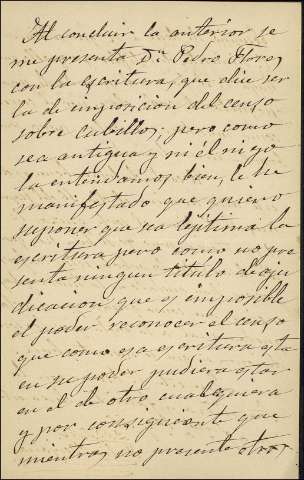 Al concluir la anterior se
me presenta Dn. Pedro Flores
con la escritura, que dice ser
la de imposicion del censo
sobre Cubillos; pero como
sea antigua y ni él ni yo
la entendamos bien, le he
manifestado que quiero
suponer que sea lejítima la
escritura pero como no pre
senta ningun título de adju
dicacion que es imposible
el poder reconocer el censo
que como esa escritura esta
en su poder pudiera estar
en el de otro cualquiera
y por consiguiente que
mientras no presente otros